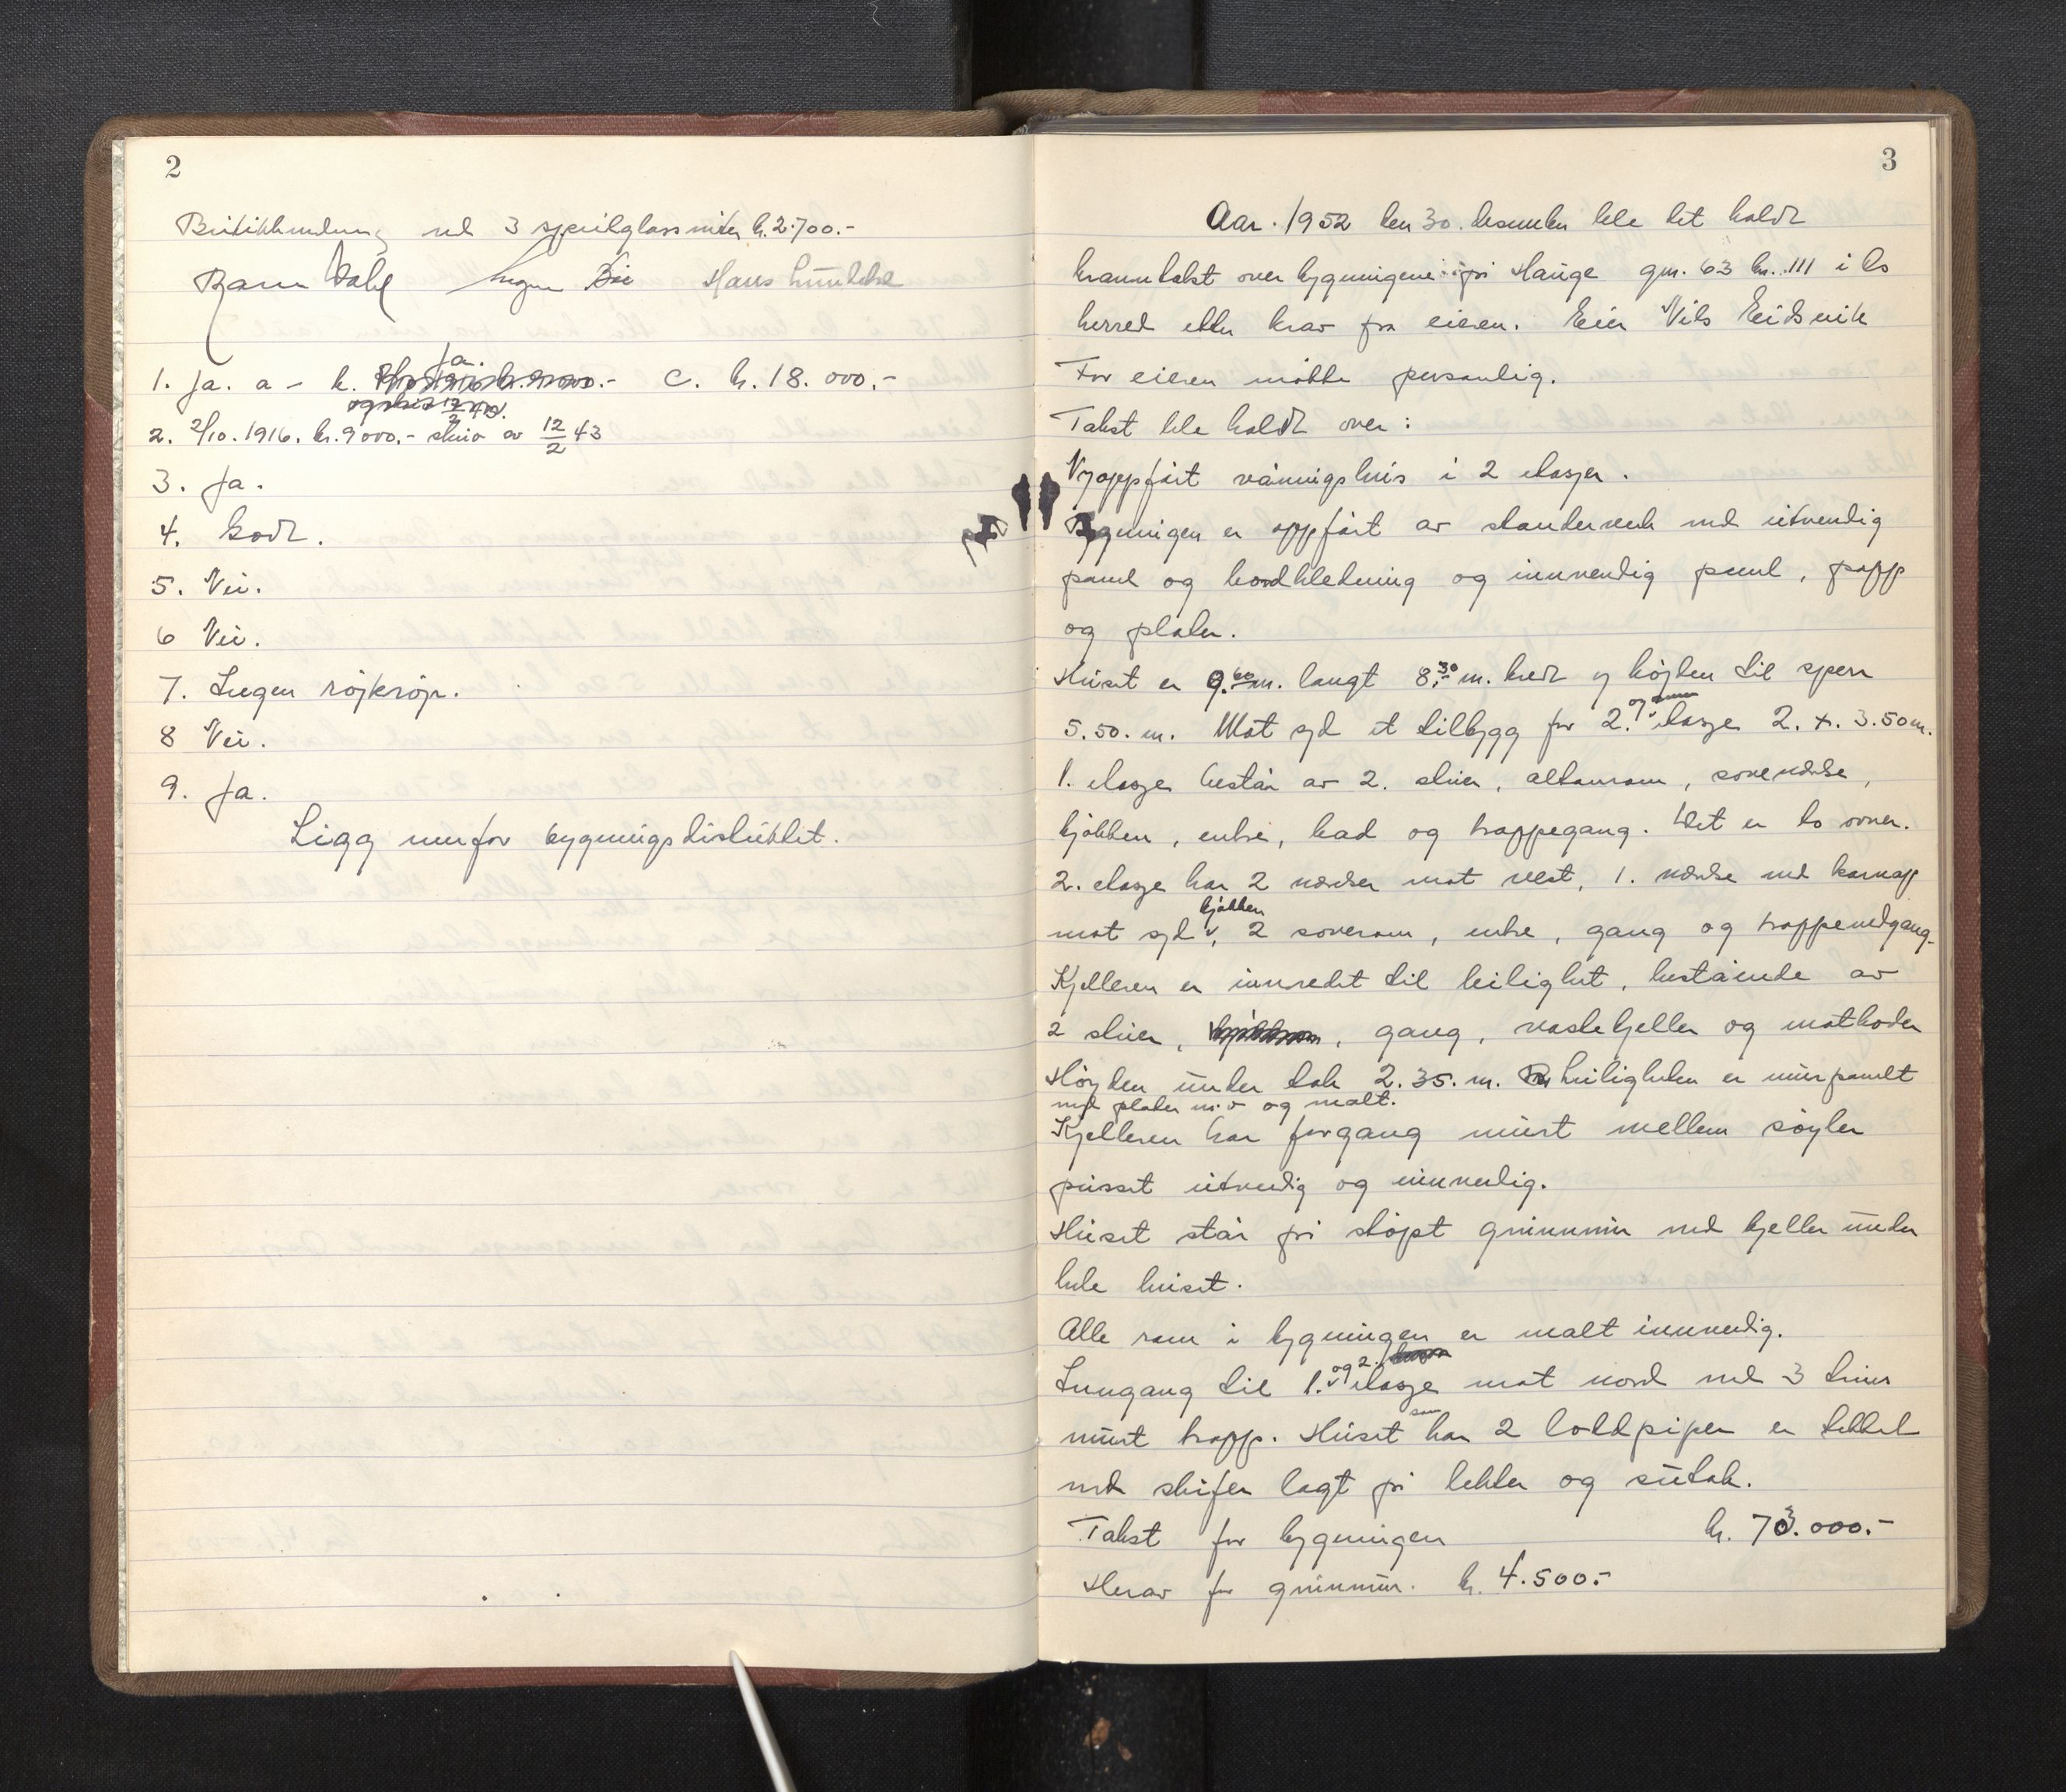 2
Butikkinnredning med 3 speilglassruter kr. 2.700.-
Hans
1. Ja. a - Ja. c. kr. 18.000.-
2. 2/10. 1916. kr. 9000.- skriv av 12/2 43
3. Ja.
4. Godt.
5. Nei.
6 Nei.
7. Ingen röjkröjr.
8 Nei.
9. Ja.
Ligg innfor bygningsdistriktet.
3
Aar. 1952 den 30. desember ble det holdt
branntakst over bygningene på Hauge gnr. 63 bnr. 111 i Os
herred etter krav fra eieren. Eier Nils Eidsvik
For eieren møtte personlig.
Takst ble holdt over:
Nyoppført våningshus i 2 etasjer.
Bygningen er oppført av standerverk med utvendig
panel og bordkledning og innvendig panel, papp
og plater.
Huset er 9.60 m. langt 8.30 m. bredt og höjden til sperr
5.50. m. Mot syd et tilbygg for 2. etasje 2. x. 3.50 m.
1. etasje består av 2. stuer, altanrom, soveværelse,
kjökken, entre, bad og trappegang. Det er to ovner.
2. etasje har 2 værelser mot vest, 1. værelse med karnapp
mot syd, kjökken 2 soverom, entre, gang og trappenedgang.
Kjelleren er innredet til leilighet, bestående av
2 stuer, gang, vaskekjeller og matboder
Höyden under tak 2.35. m. Leiligheten er murpanelt
med plater m.v og malt.
Kjelleren har forgang murt mellem söyler
pusset utvendig og innvendig.
Huset står på stöpt grunnmur med kjeller under
hele huset.
Alle rom i bygningen er malt innvendig.
Inngang til 1. og 2. etasje mot nord med 3 trins
murt trapp. Huset som har 2 loddpiper er tekket
med skifer lagt på lekter og sutak.
Takst for bygningen kr. 73.000.-
Herav for grunnmur. kr. 4.500.-